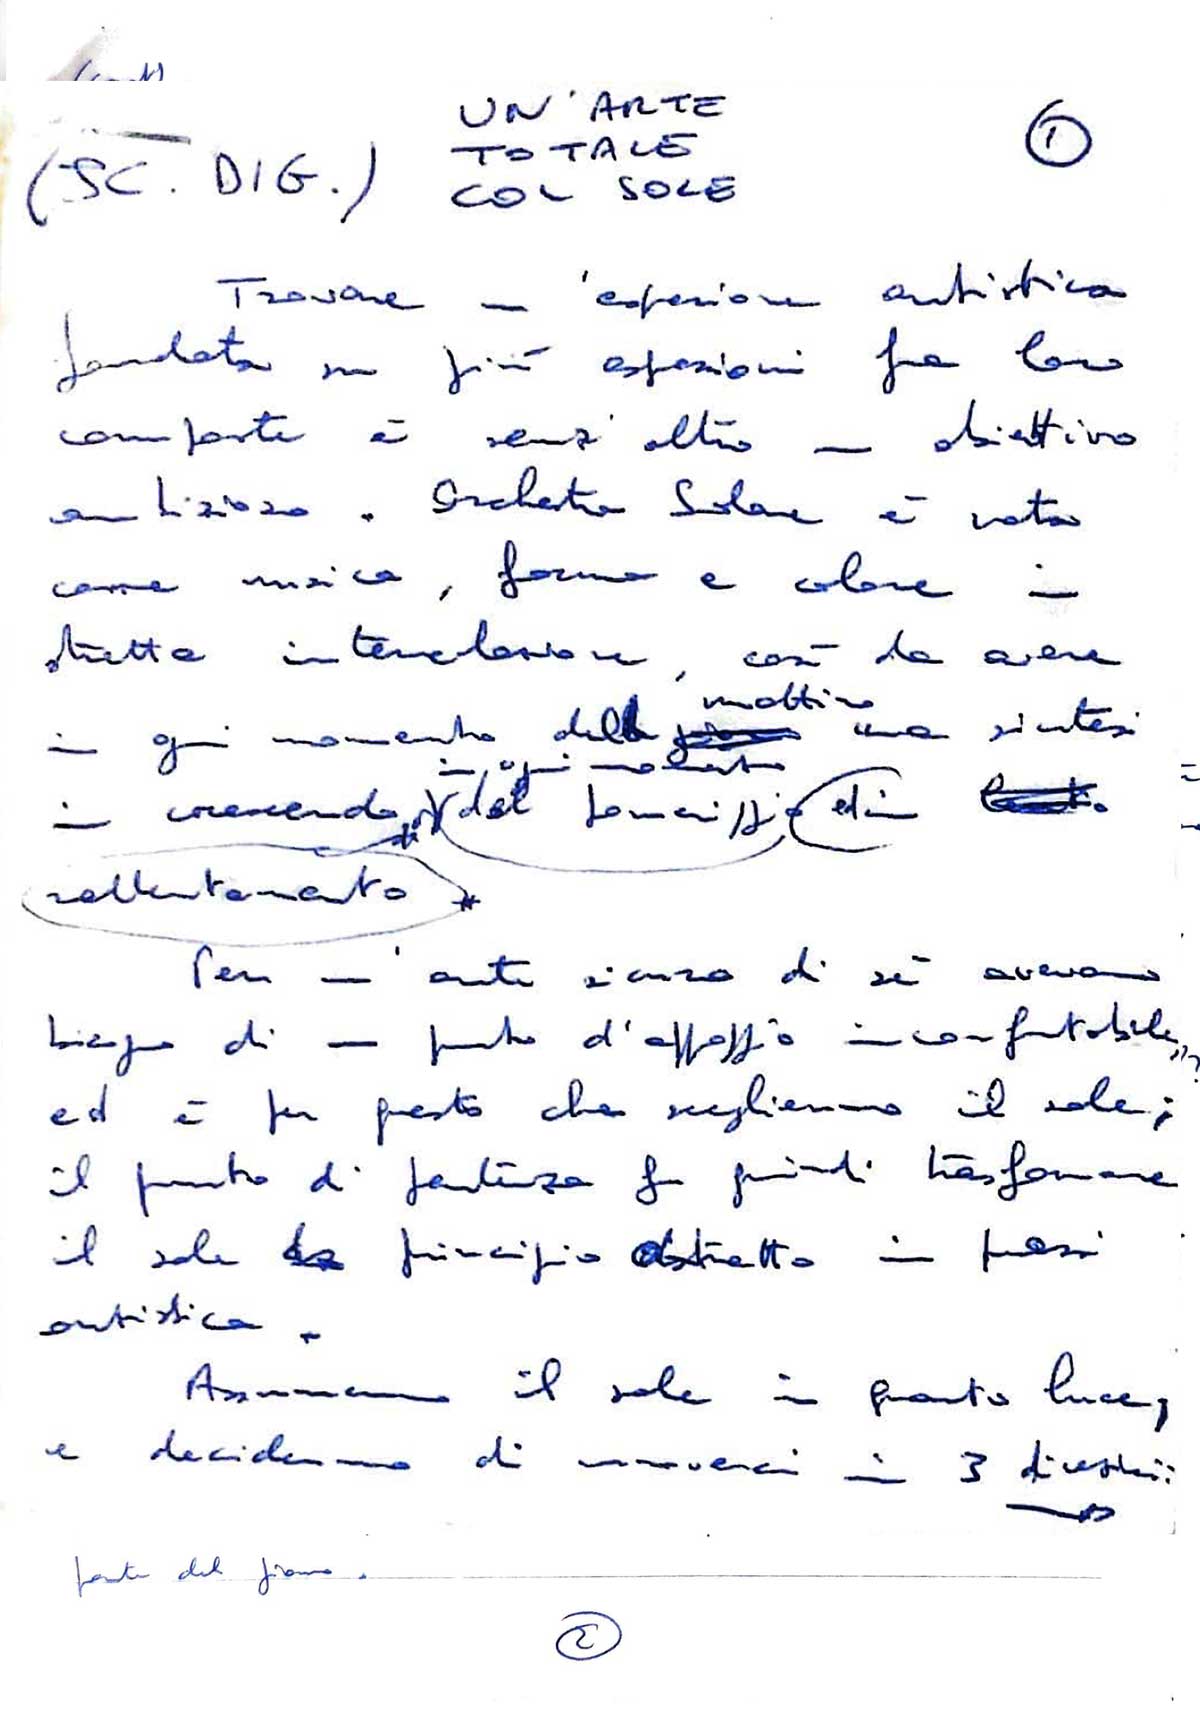 UN'ARTE
TOTALE
COL SOLE
(SC. DIG.)
1
Trovare un'espressione artistica
fondata su più espressioni fra loro
comparte è senz'altro un obiettivo
ambizioso. Orchestra Solare è nata
come musica, forma e colore in
stretta interrelazione, così da avere
mattino
in ogni momento del una sintesi
in ogni momento
in crescendo * del pomeriggio ed in
rallentamento *
Per un'arte sicura di sé avevamo
bisogno di un punto d'appoggio inconfutabile, ?
ed è per questo che scegliemmo il sole;
il punto di partenza fu quindi trasformare
il sole da principio astratto in prassi
artistica.
Assumemmo il sole in quanto luce,
e decidemmo di muoverci in 3 direzioni:
parte del giorno.
2